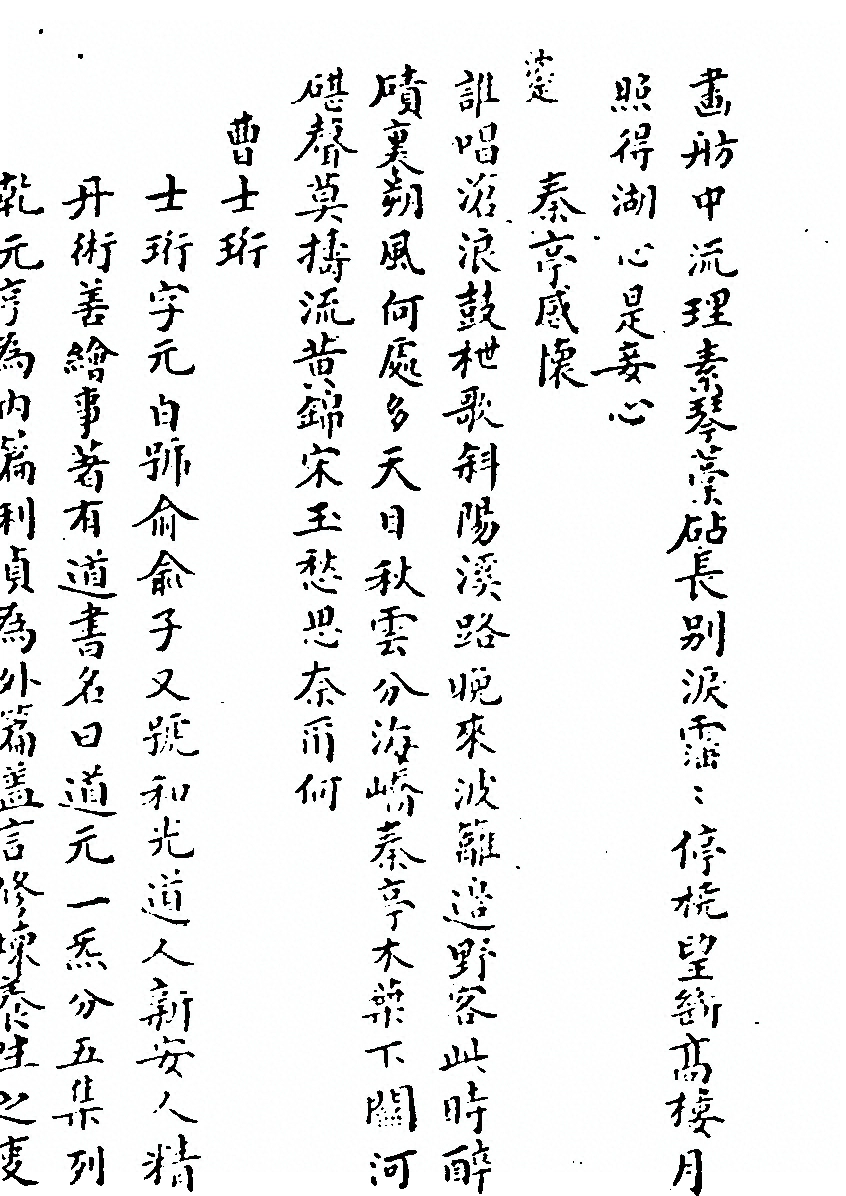 畫舫中流理素琴藁砧長別淚霑〻停橈望斷髙樓月
照得湖心是妾心
秦亭感懷
誰唱滄浪鼓枻歌斜陽溪路晚來波籬邉野客此時醉
磧裏朔風何處多天日秋雲分海嶠秦亭木葉下關河
碪聲莫擣流黄錦宋玉愁思奈爾何
曹士珩
士珩字元白號俞俞子又號和光道人新安人精
丹術善繪事著有道書名曰道元一炁分五集列
乾元亨為内篇利貞為外篇盖言修煉養生之